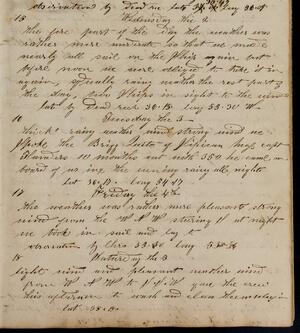 observations by Dead rec lat long 36-
15 Wednesday the 2
the fore part of the day the weather was
rather more moderate so that we made
nearly all sail on the Ship again but
before noon we were obliged to take it in
again squally rainy weather the rest part of
the day two Ships in sight to the
lat by dead reck 36-13 long 33-30 W-
16 the 3-
thick rainy weather and strong wind we
Spoke the Brigg of capt
Flanders 10 months out with 350 he came on
board of us in the evening rainy all night
lat 36-13 - long 34-17
17 Friday the 4th
the weather was rather more pleasant strong
wind from the W N W steering at night
we took in sail and lay to
observation by Chro 33-50 long
18 the 5
light wind and pleasant weather wind
from W N W to gave the crew
this afternoon to wash and clean themselves in
lat